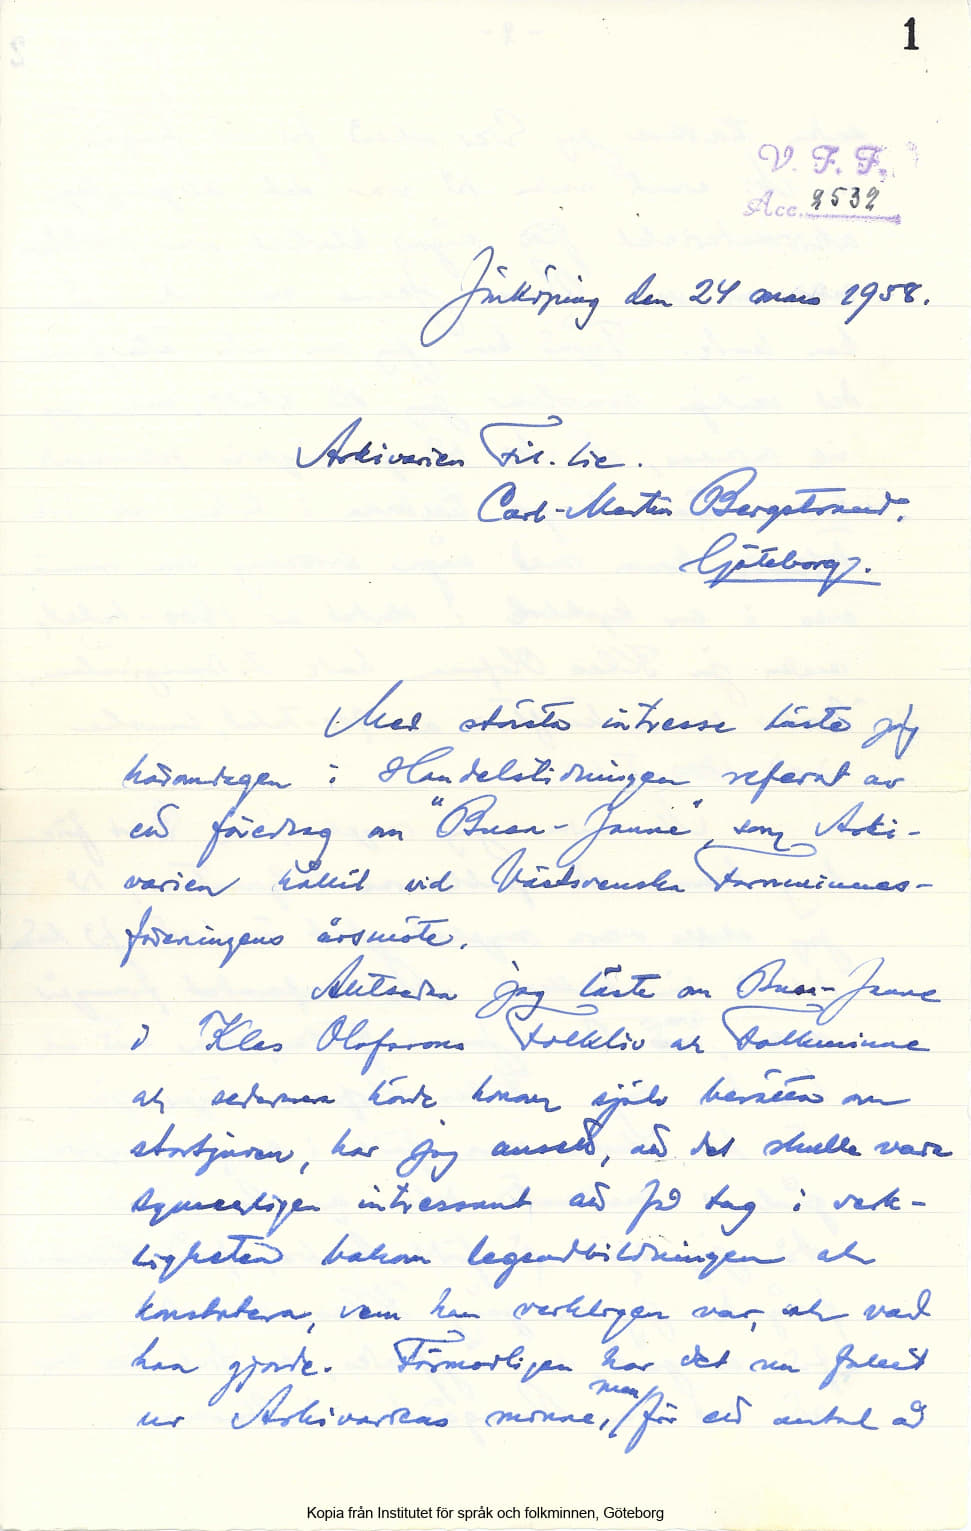 1
V. F. F.
Acc. 2532
Jönköping den 24 mars 1958.
Arkivarien Fil. lic.
Carl-Martin Bergstrand.
Göteborg.
Med största intresse läste jag
häromdagen i Handelstidningen referat av
ett föredrag om "Buan-Janne", som Arki-
varien hållit vid Västsvenska Fornminnes-
föreningens årsmöte.
Alltsedan jag läste om Buan-Janne
i Klas Olofssons Folkliv och Folkminne
och sedermera hörde honom själv berätta om
stortjuven, har jag ansett, att det skulle vara
synnerligen intressant att få tag i verk-
ligheten bakom legendbildningen och
konstatera, vem han verkligen var, och vad
han gjorde. Förmodligen har det nu fallit
ur Arkivariens minne, men för ett antal år
Kopia från Institutet för språk och folkminnen, Göteborg